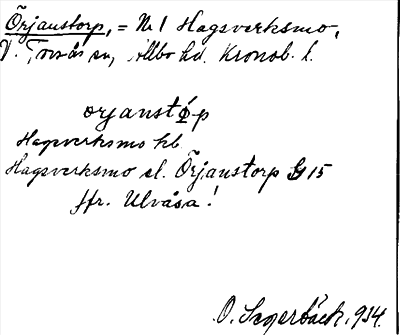 Örjanstorp, = № 1 Hagsverksmo,
V. Torsås sn, Allbo hd. Kronob. l.
orjanstɷp
Hagsverksmo hb
Hagsverksmo el. Örjanstorp G 15
Jfr. Ulvåsa!
O. Sagerbäck, 934.